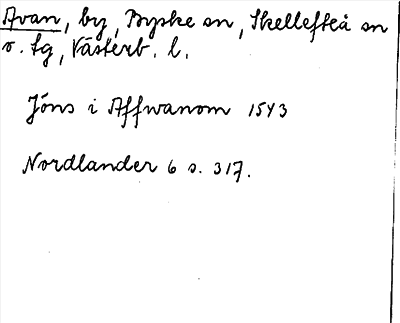 Avan, by, Byske sn, Skellefteå sn
o. tg, Västerb. l.
Jöns i Affwanom 1543
Nordlander 6 s. 317.